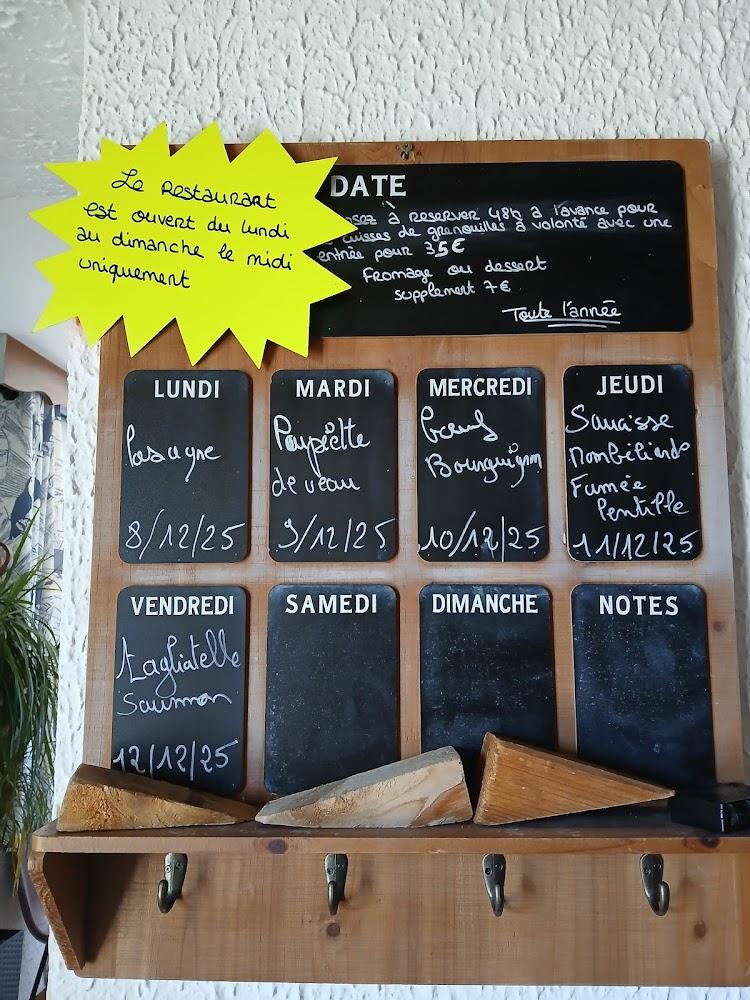 Le Restaurant
est ouvert du lundi
au dimanche le midi
uniquement
DATE
à reserver 48h a l'avance pour
cuisses de grenouilles à volonté avec une
entrée pour 35€
Fromage ou dessert
supplement 7€
Toute l'année
LUNDI
Lasagne
8/12/25
MARDI
Paupiette
de veau
9/12/25
MERCREDI
Boeuf
Bourguignon
10/12/25
JEUDI
Saucisse
Montbéliarde
Fumée
lentille
11/12/25
VENDREDI
Tagliatelle
Saumon
12/12/25
SAMEDI
DIMANCHE
NOTES